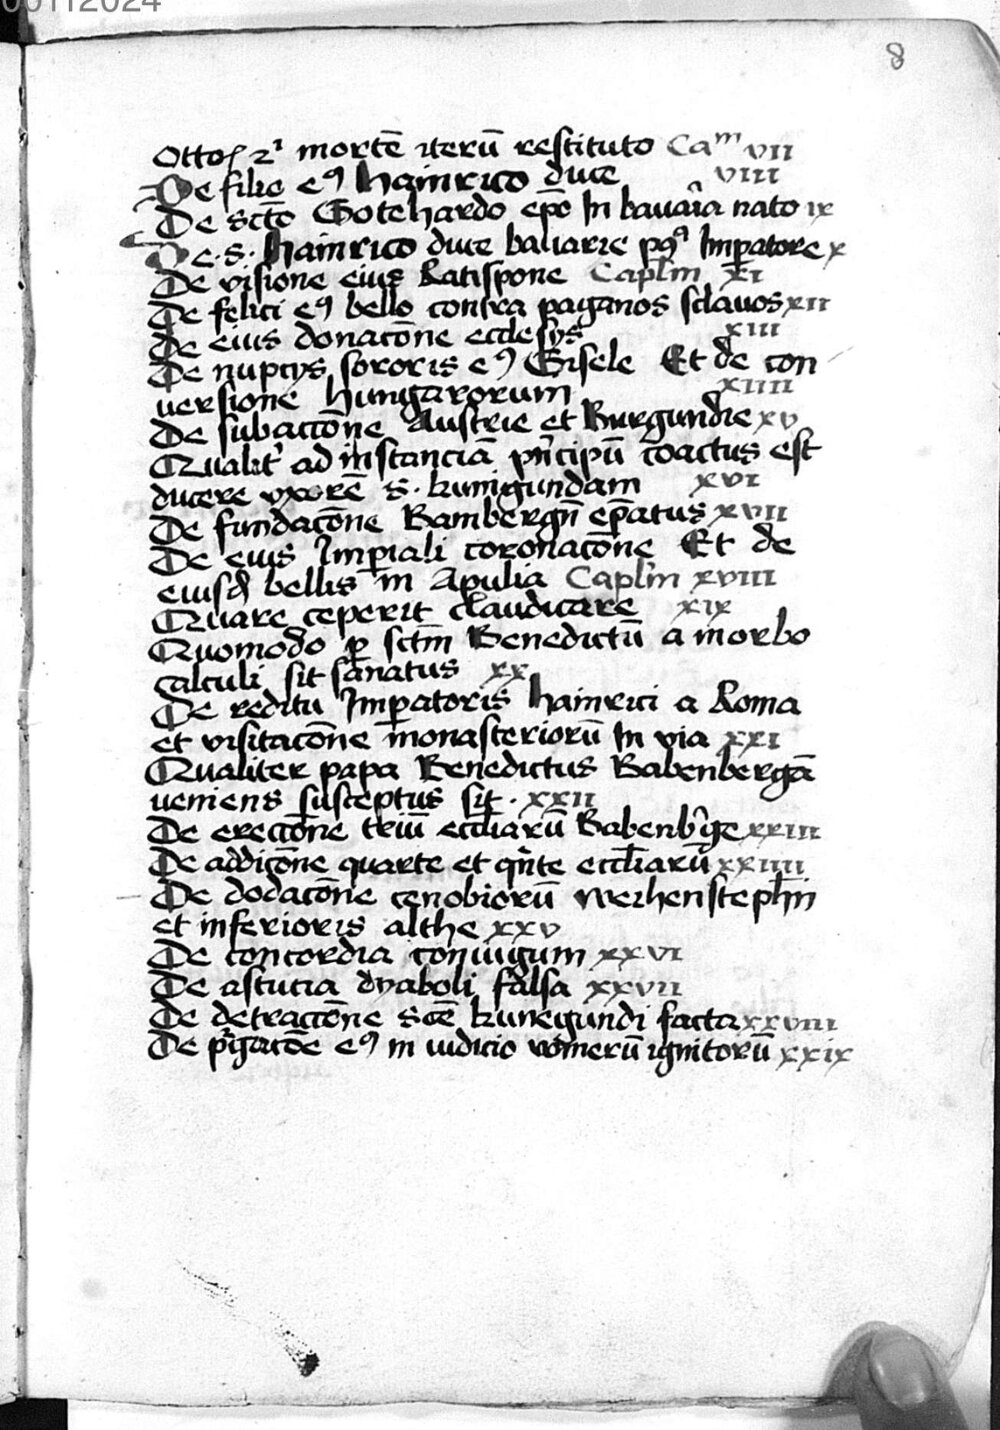 00112024
8
Ottoꝭ 2ⁱ mortē iterū restituto Caᵐ vii
De filie eꝰ Hainrico duce viii
De sctō Gotehardo epō In bavaria nato ix
De .S. Hainrico duce bavarie pꝰ Imꝑatore x
De visione eius Ratispone Caplm xi
De felici eꝰ bello contra paganos sclavos xii
De eius donacōne ecclesijs xiii
De nuptijs sororis eꝰ Gisele Et de con
versione hungarorum xiiii
De subaccōne Austrie et Burgundie xv
Qualit' ad instanciā pͥncipū coactus est
ducere vxorē S. kunigundam xvi
De fundacōne Bambergñ eṕatus xvii
De eius Imꝑiali coronacōne Et de
eiusđ bellis in Apulia Caplm xviii
Quare ceperit claudicare xix
Quomodo ꝑ sctm̄ Benedictū a morbo
calculi sit sanatus xx
De reditu Imꝑatoris hainrici a Roma
et visitacōne monasteriorū In via xxi
Qualiter papa Benedictus Babenbergā
veniens susceptus sit. xxii
De ereccōne triū eccl̄iarū Babenb'ge xxiii
De addicōne quarte et qͥnte eccl̄iarū xxiiii
De dodacōne cenobiorū Weihensteph̄n
et inferioris althe xxv
De concordia coniugum xxvi
De astucia dyaboli falsa xxvii
De detraccōne scē kunegundi facta xxviii
De pͥgacōe eꝰ in iudicio vomerū ignitorū xxix